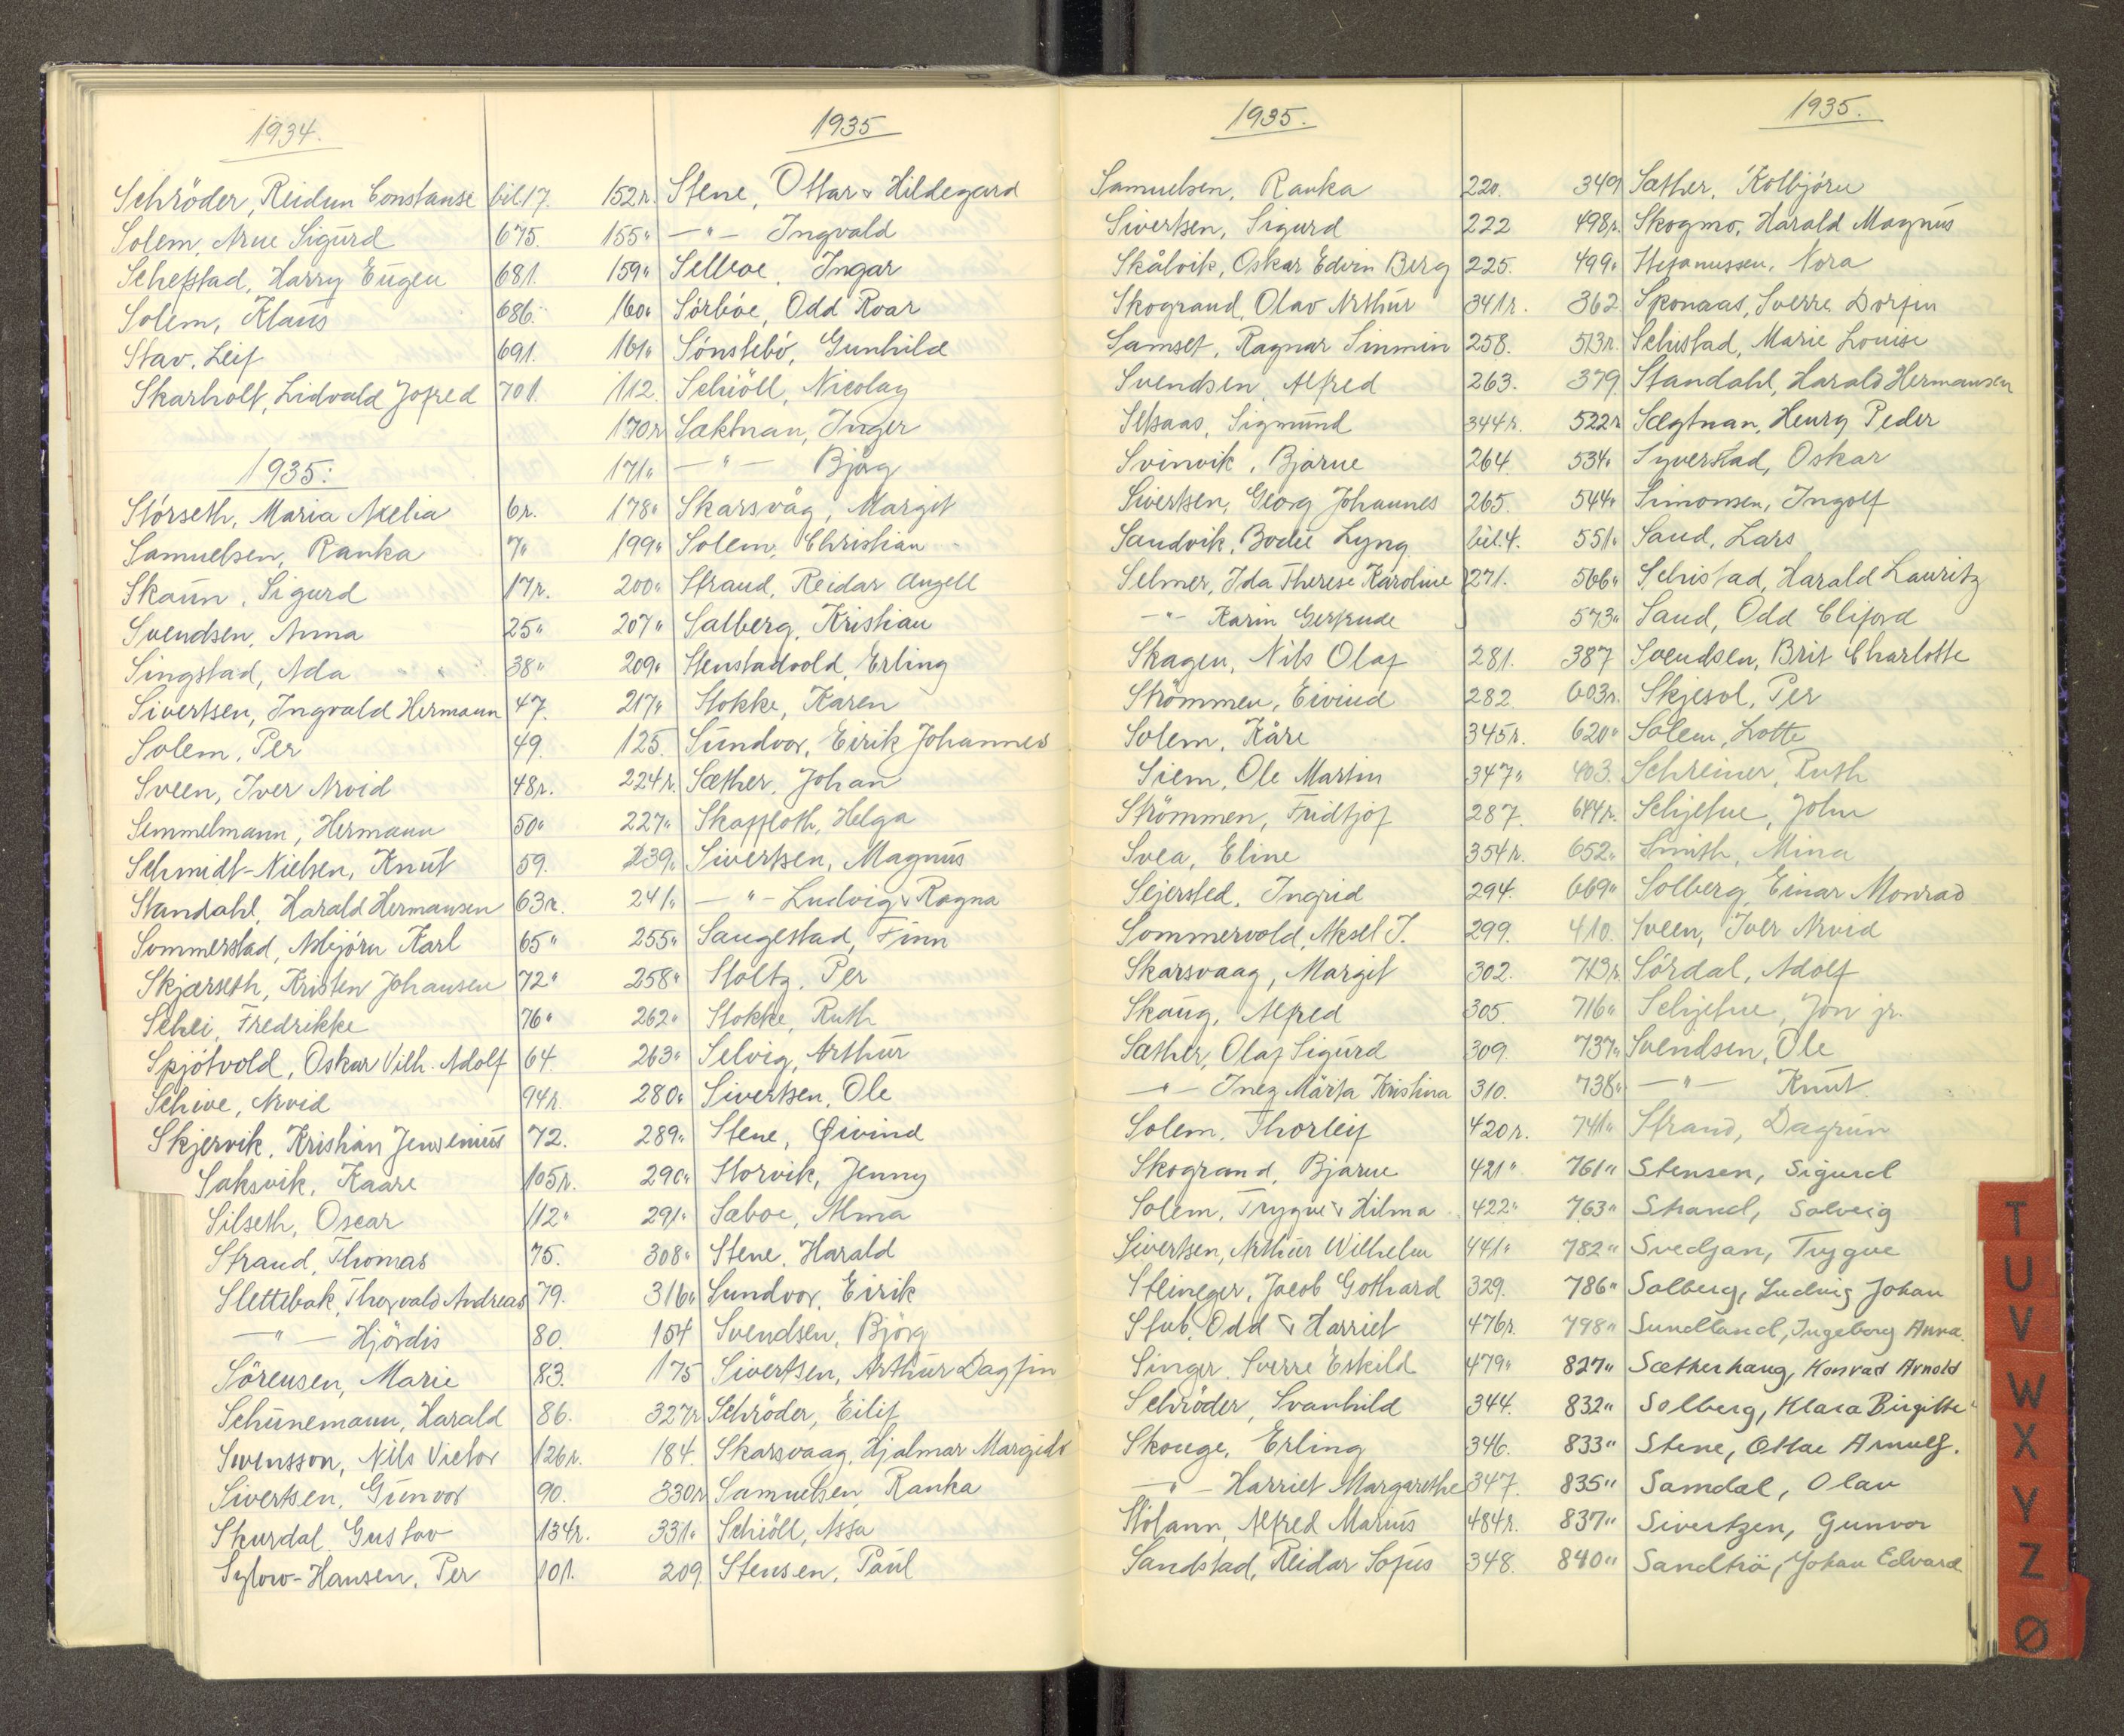 1934.
Schröder, Reidun Constanse bil 17.
Solem, Arne Sigurd 675.
Schefstad, Harry Eugen 681.
Solem, Klaus 686.
Stav. Leif 691.
Skarholt, Lidvald Jofred 701.
1935:
Störseth, Maria Axelia 6r.
Samuelsen, Ranka 7"
Skaun, Sigurd 17r.
Svendsen, Anna 25"
Singstad, Ada 38"
Sivertsen, Ingvald Hermann 47.
Solem, Per 49.
Sveen, Iver Arvid 48r.
Semmelmann, Hermann 50"
Schmidt-Nielsen, Knut 59.
Standahl, Harald Hermansen 63r.
Sommerstad, Asbjörn Karl 65"
Skjærseth, Kristen Johansen 72"
Schei, Fredrikke 76"
Spjötvold, Oskar Vilh. Adolf 64.
Schive, Arvid 94r.
Skjervik, Kristian Jensenius 72.
Saksvik, Kaare 105r.
Silseth, Oscar 112"
Strand, Thomas 75.
Slettebak, Thorvald Andreas 79.
— " — Hjördis 80.
Sörensen, Marie 83.
Schünemann, Harald 86.
Svensson, Nils Victor 126r.
Sivertsen, Gunvor 90.
Skurdal, Gustav 134r.
Sylow-Hansen, Per 101.
1935
152r. Stene, Ottar & Hildegard
155" — " — Ingvald
159" Selboe, Ingar
160" Sörböe, Odd Roar
161" Sönstebö, Gunhild
112. Schiöll, Nicolay
170r Sæktnan, Inger
171" — " — Bjørg
178" Skarsvåg, Margit
199" Solem, Christian
200" Strand, Reidar Angell
207" Salberg, Kristian
209" Stenstadvold, Erling
217" Stokke, Karen
125. Sundvor, Eirik Johannes
224r. Sæther, Johan
227" Skaffloth, Helga
239" Sivertsen, Magnus
241" — " — Ludvig & Ragna
255" Saugestad, Finn
258" Stoltz, Per
262" Stokke, Ruth
263" Selvig, Arthur
280" Sivertsen, Ole
289" Stene, Øivind
290" Storvik, Jenny
291" Sæboe, Alma
308" Stene, Harald
316" Sundvor, Eirik
154 Svendsen, Björg
175 Sivertsen, Arthur Dagfin
327r Schröder, Eilif
184. Skarsvaag, Hjalmar Margido
330r Samuelsen, Ranka
331" Schiöll, Assa
209. Stensen, Paul
1935.
Samuelsen, Ranka 220.
Sivertsen, Sigurd 222
Skålvik, Oskar Edvin Berg 225.
Skogrand, Olav Arthur 341r.
Samset, Ragnar Sinmin 258.
Svendsen, Alfred 263.
Setsaas, Sigmund 344r.
Svinvik, Bjarne 264.
Sivertsen, Georg Johannes 265.
Sandvik, Bodil Lyng bil. 4.
Selmer, Ida Therese Karoline 271.
— " — Karin Gertrude
Skagen, Nils Olaf 281.
Strömmen, Eivind 282.
Solem, Kåre 345r.
Siem, Ole Martin 347"
Strömmen, Fridtjof 287.
Svea, Eline 354r.
Sejersted, Ingrid 294.
Sommervold, Aksel J. 299.
Skarsvaag, Margit 302.
Skaug, Alfred 305.
Sæther, Olaf Sigurd 309.
— " — Inez Märta Kristina 310.
Solem, Thorleif 420r.
Skogrand, Bjarne 421"
Solem, Trygve & Hilma 422"
Sivertsen, Arthur Wilhelm 441"
Steineger, Jacob Gothard 329.
Stub, Odd & Harriet 476r.
Singer, Sverre Eskild 479"
Schröder, Svanhild 344.
Skouge, Erling 346.
— " — Harriet Margarethe 347.
Stölann, Alfred Marius 484r.
Sandstad, Reidar Sofus 348.
1935.
349 Sæther, Kolbjörn
498r. Skogmo, Harald Magnus
499" Stefanussen, Nora
362. Skonaas, Sverre Dorfin
513r. Schistad, Marie Louise
379. Standahl, Harald Hermansen
522r Sægtnan, Henry Peder
534" Syverstad, Oskar
544" Simonsen, Ingolf
551" Sand, Lars
566" Schistad, Harald Lauritz
573" Sand, Odd Cliford
387 Svendsen, Brit Charlotte
603r. Skjesol, Per
620" Solem, Lotte
403. Schreiner, Ruth
644r. Schjefne, John
652" Smith, Mina
669" Solberg, Einar Monrad
410. Sveen, Iver Arvid
713r. Sördal, Adolf
716" Schjefne, Jon jr.
737" Svendsen, Ole
738" — " — Knut
741" Strand, Dagrun
761" Stensen, Sigurd
763" Strand, Solveig
782" Svedjan, Trygve
786" Solberg, Ludvig Johan
798" Sundland, Ingeborg Anna.
827" Sætherhaug, Konrad Arnold
832" Solberg, Klara Birgitte
833" Stene, Ottar Arnulf.
835" Samdal, Olav
837" Sivertzen, Gunvor
840" Sandtrö, Johan Edvard
T
U
V
W
X
Y
Z
Ø